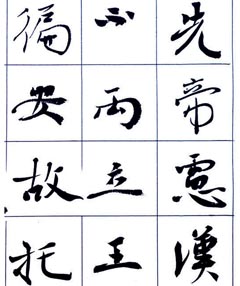 先帝慮漢
不兩立王
偏安故托